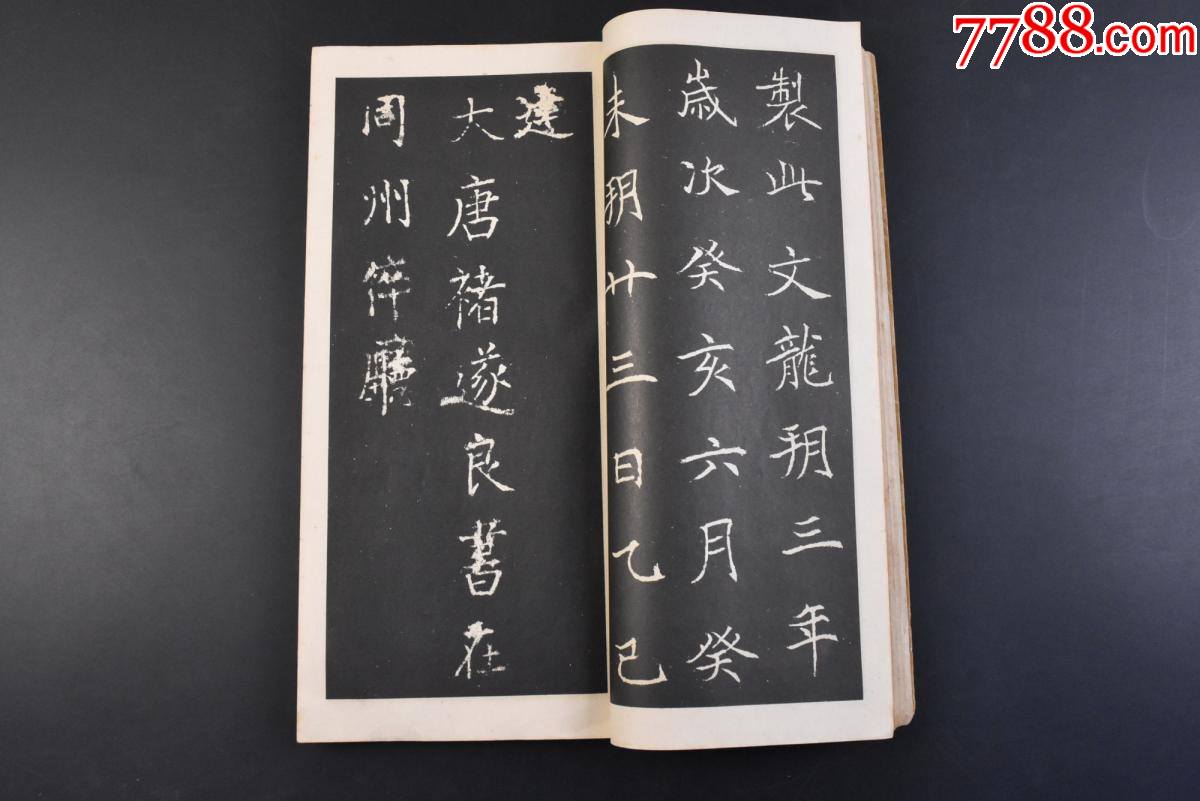 7788.com
製此文龍朔三年
歲次癸亥六月癸
未朔廿三日乙巳
建
大唐褚遂良書在
同州倅廳